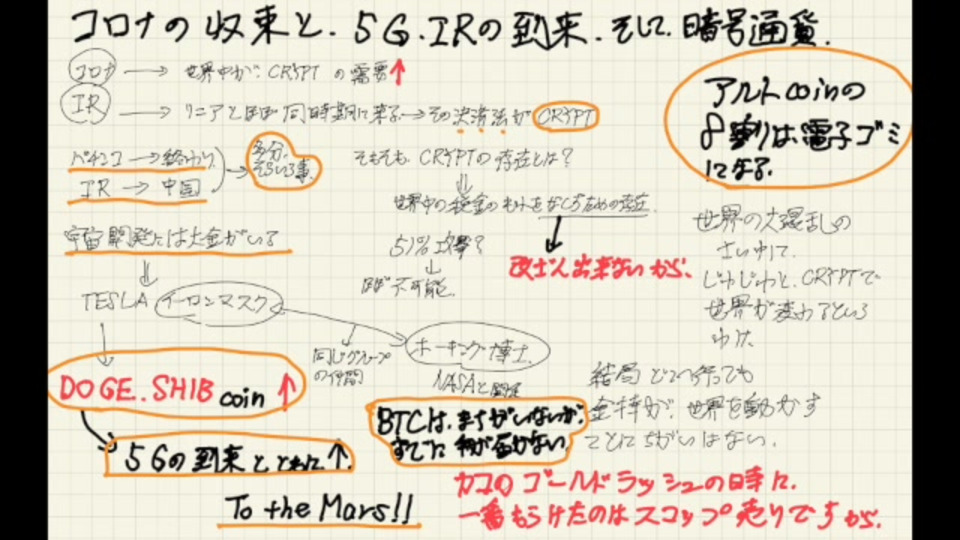 コロナの収束と、5G、IRの到来、そして、暗号通貨、
コロナ → 世界中が、CRYPTの需要↑
IR → リニアとほぼ同時期に来る→その決済法がCRYPT
アルトcoinの
8割りは電子ゴミ
になる。
パチンコ→終わり
IR → 中国
多分、
そういう事、
そもそも、CRYPTの存在とは?
世界中の税金のもれをなくすための存在
51%攻撃?
ほぼ不可能、
改ざん出来ないから、
宇宙開発には大金がいる
TESLA イーロンマスク
同じグループ
の仲間
ホーキング博士、
NASAと
世界の大混乱の
さい中で、
じわじわと、CRYPTで
世界が変わるという
わけ、
DOGE、SHIB coin ↑
5Gの到来とともに↑
To the Mars!!
BTCは、まちがいないが、
すでに 手が届かない、
結局 どこへ行っても
金持が、世界を動かす
ことにちがいはない、
カコのゴールドラッシュの時に、
一番もうけたのはスコップ売りですから、